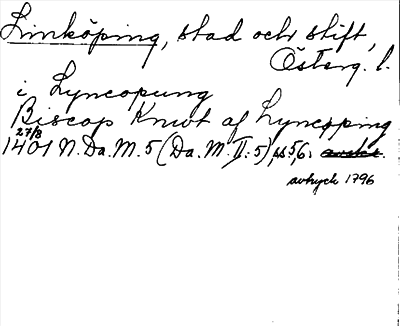 Linköping, stad och stift,
Österg. l.
i Lyncopung
Biscop Knwt af Lyncöping
27/8
1401 N. Da. M. 5 (Da. M. II: 5), s. 56.
avtryck 1796